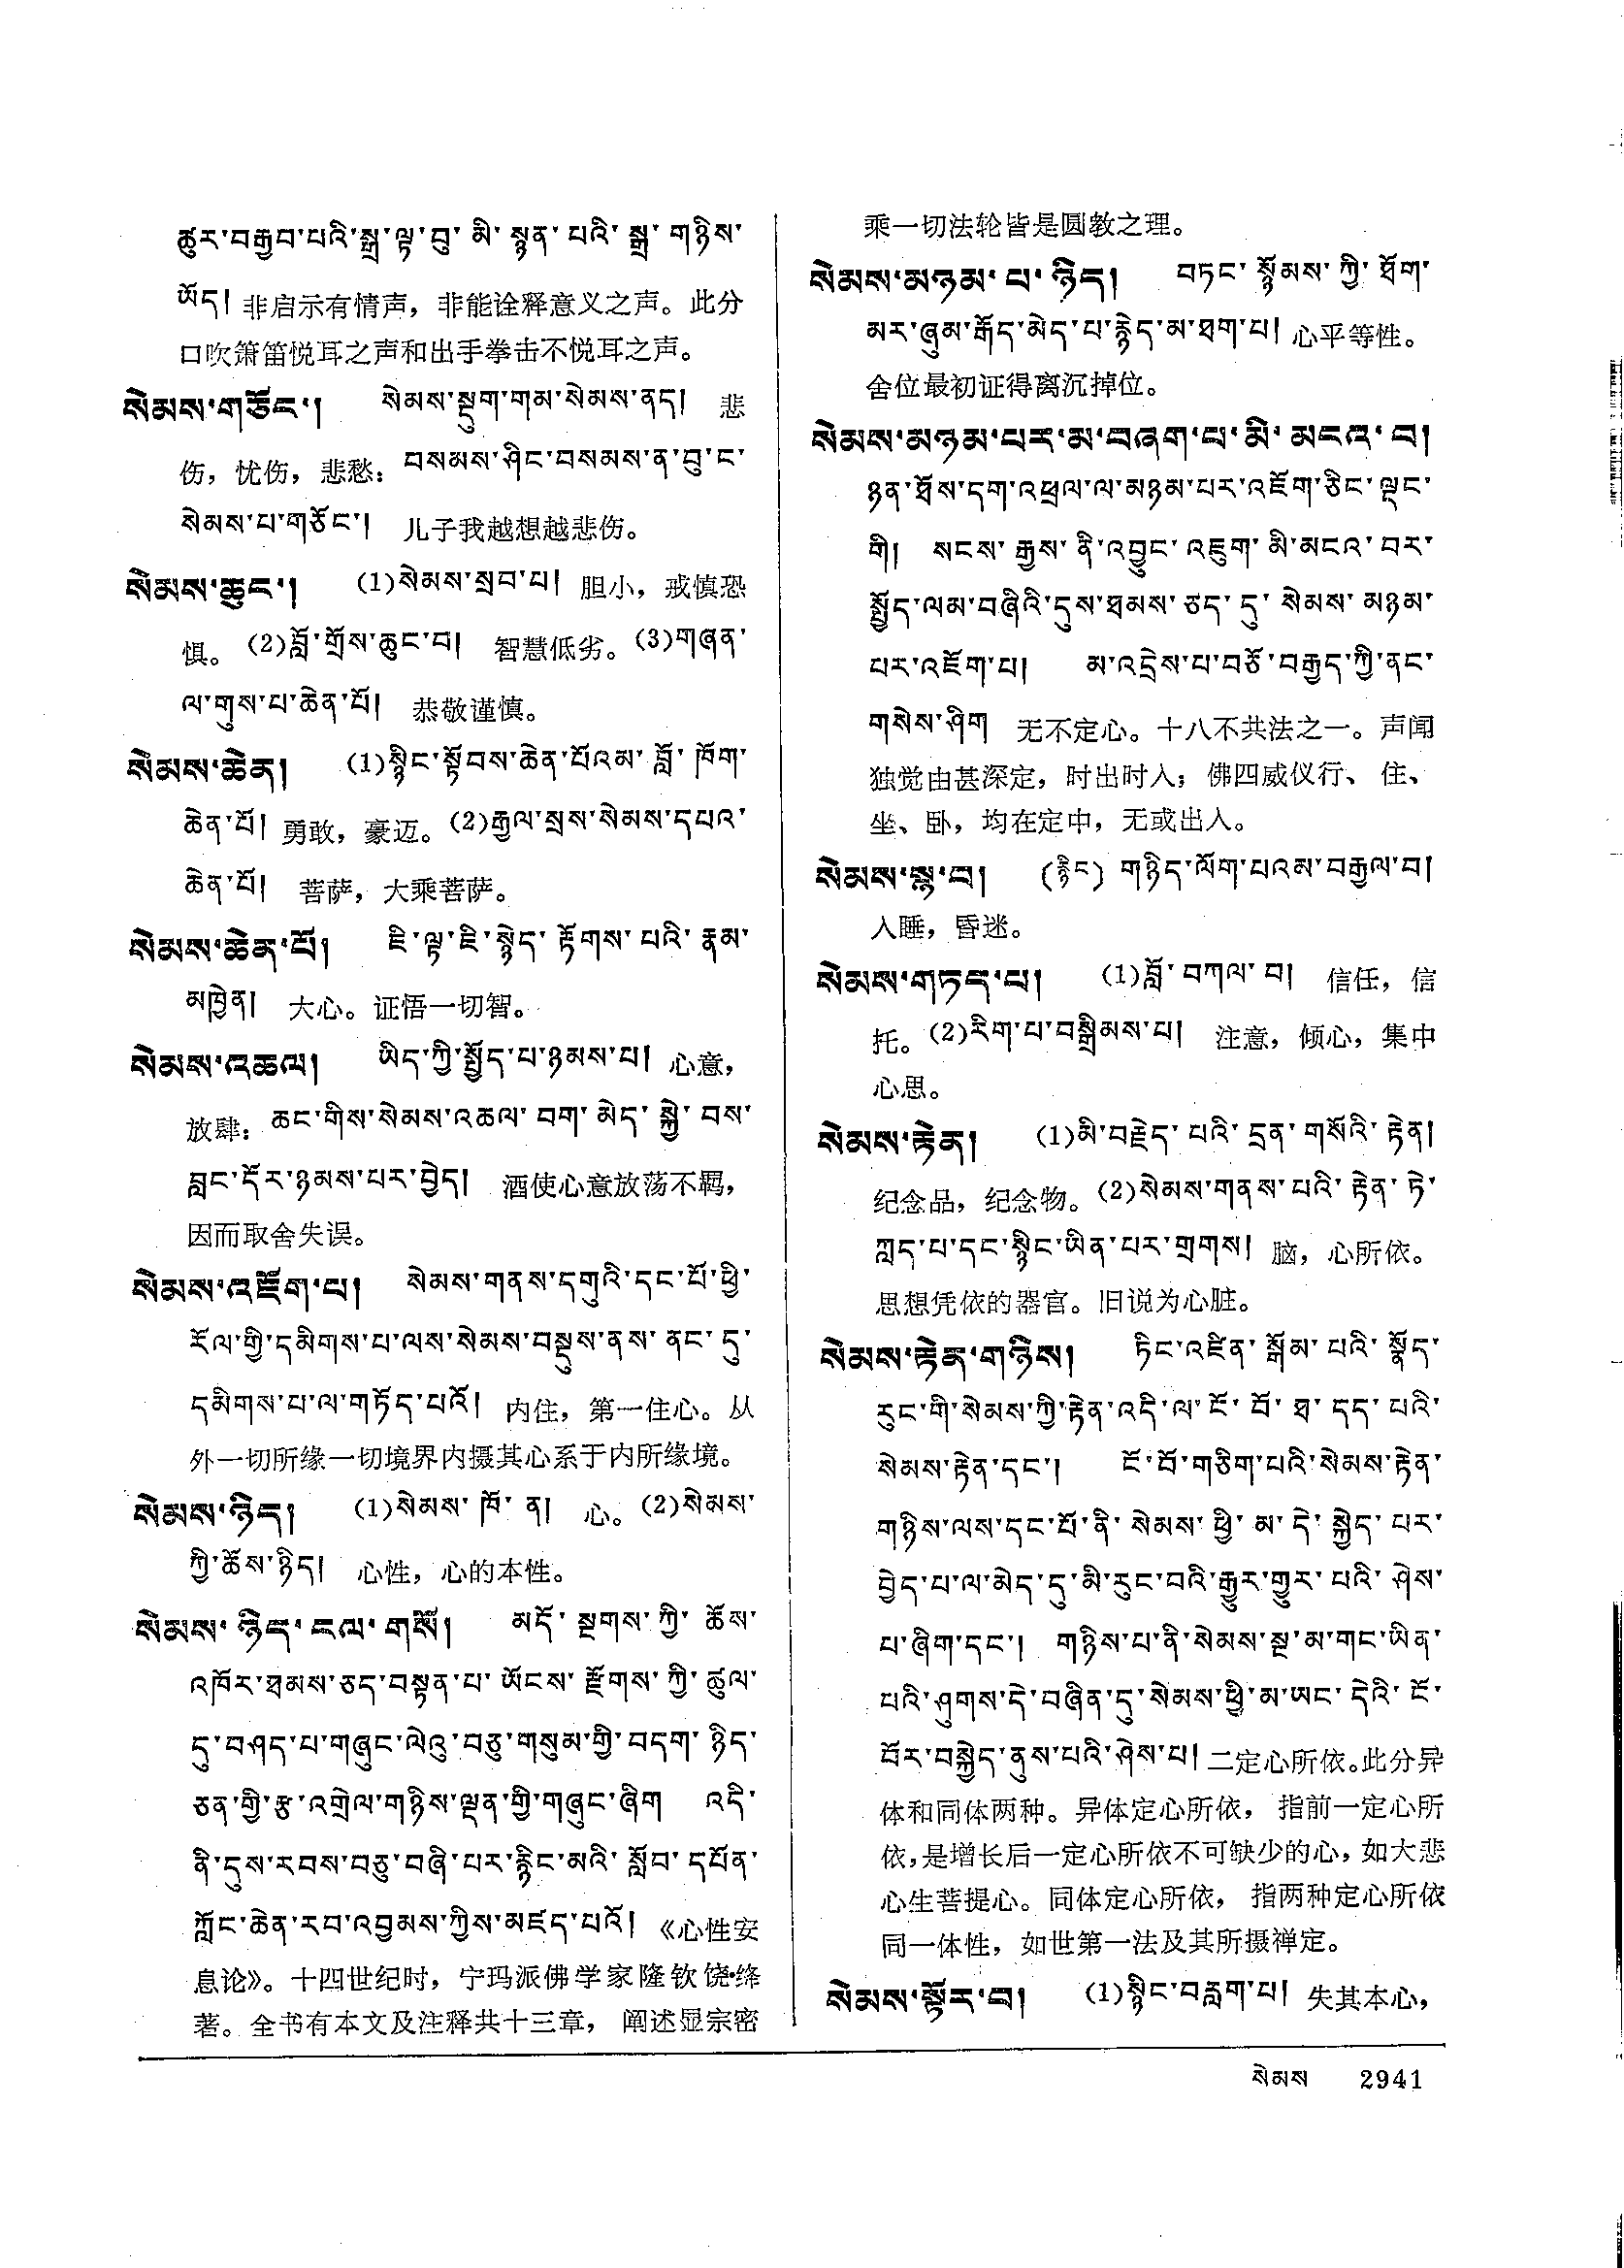 ཚུར་བརྒྱབ་པའི་སྒྲ་ལྟ་བུ་མི་སྙན་པའི་སྒྲ་གཉིས་
ཡོད། 非启示有情声，非能诠释意义之声。此分
口吹箫笛悦耳之声和出手拳击不悦耳之声。
སེམས་གཙོང་། སེམས་སྡུག་གམ་སེམས་ནད། 悲
伤，忧伤，悲愁：བསམས་ཤིང་བསམས་ན་བུ་ང་
སེམས་པ་གཙོང་། 儿子我越想越悲伤。
སེམས་ཆུང་། (1)སེམས་སྲབ་པ། 胆小，戒慎恐
惧。(2)བློ་གྲོས་ཆུང་བ། 智慧低劣。(3)གཞན་
ལ་གུས་པ་ཆེན་པོ། 恭敬谨慎。
སེམས་ཆེན། (1)སྙིང་སྟོབས་ཆེན་པོའམ་བློ་ཁོག་
ཆེན་པོ། 勇敢，豪迈。(2)རྒྱལ་སྲས་སེམས་དཔའ་
ཆེན་པོ། 菩萨，大乘菩萨。
སེམས་ཆེན་པོ། ཇི་ལྟ་ཇི་སྙེད་རྟོགས་པའི་རྣམ་
མཁྱེན། 大心。证悟一切智。
སེམས་འཆལ། ཡིད་ཀྱི་སྤྱོད་པ་ཉམས་པ། 心意，
放肆：ཆང་གིས་སེམས་འཆལ་བག་མེད་སྐྱེ་བས་
བླང་དོར་ཉམས་པར་བྱེད། 酒使心意放荡不羁，
因而取舍失误。
སེམས་འཇོག་པ། སེམས་གནས་དགུའི་དང་པོ་ཕྱི་
རོལ་གྱི་དམིགས་པ་ལས་སེམས་བསྡུས་ནས་ནང་དུ་
དམིགས་པ་ལ་གཏོད་པའོ། 内住，第一住心。从
外一切所缘一切境界内摄其心系于内所缘境。
སེམས་ཉིད། (1)སེམས་ཁོ་ན། 心。(2)སེམས་
ཀྱི་ཆོས་ཉིད། 心性，心的本性。
སེམས་ཉིད་ངལ་གསོ། མདོ་སྔགས་ཀྱི་ཆོས་
འཁོར་ཐམས་ཅད་བསྟན་པ་ཡོངས་རྫོགས་ཀྱི་ཚུལ་
དུ་བཤད་པ་གཞུང་ལེའུ་བཅུ་གསུམ་གྱི་བདག་ཉིད་
ཅན་གྱི་རྩ་འགྲེལ་གཉིས་ལྡན་གྱི་གཞུང་ཞིག འདི་
ནི་དུས་རབས་བཅུ་བཞི་པར་རྙིང་མའི་སློབ་དཔོན་
ཀློང་ཆེན་རབ་འབྱམས་ཀྱིས་མཛད་པའོ། 《心性安
息论》。十四世纪时，宁玛派佛学家隆钦饶·绛
著。全书有本文及注释共十三章，阐述显宗密
乘一切法轮皆是圆教之理。
སེམས་མཉམ་པ་ཉིད། བཏང་སྙོམས་ཀྱི་ཐོག་
མར་ཞུམ་རྒོད་མེད་པ་རྙེད་མ་ཐག་པ། 心平等性。
舍位最初证得离沉掉位。
སེམས་མཉམ་པར་མ་བཞག་པ་མི་མངའ་བ།
ཉན་ཐོས་དག་འཕྲལ་ལ་མཉམ་པར་འཇོག་ཅིང་ལྡང་
གི། སངས་རྒྱས་ནི་འབྱུང་འཇུག་མི་མངའ་བར་
སྤྱོད་ལམ་བཞིའི་དུས་ཐམས་ཅད་དུ་སེམས་མཉམ་
པར་འཇོག་པ། མ་འདྲེས་པ་བཅོ་བརྒྱད་ཀྱི་ནང་
གསེས་ཤིག 无不定心。十八不共法之一。声闻
独觉由甚深定，时出时入；佛四威仪行、住、
坐、卧，均在定中，无或出入。
སེམས་སྙ་བ། (རྙིང) གཉིད་ལོག་པའམ་བརྒྱལ་བ།
入睡，昏迷。
སེམས་གཏད་པ། (1)བློ་བཀལ་བ། 信任，信
托。(2)རིག་པ་བསྒྲིམས་པ། 注意，倾心，集中
心思。
སེམས་རྟེན། (1)མི་བརྗེད་པའི་དྲན་གསོའི་རྟེན།
纪念品，纪念物。(2)སེམས་གནས་པའི་རྟེན་ཏེ་
ཀླད་པ་དང་སྙིང་ཡིན་པར་གྲགས། 脑，心所依。
思想凭依的器官。旧说为心脏。
སེམས་རྟེན་གཉིས། ཏིང་འཛིན་སྒོམ་པའི་སྣོད་
རུང་གི་སེམས་ཀྱི་རྟེན་འདི་ལ་ངོ་བོ་ཐ་དད་པའི་
སེམས་རྟེན་དང་། ངོ་བོ་གཅིག་པའི་སེམས་རྟེན་
གཉིས་ལས་དང་པོ་ནི་སེམས་ཕྱི་མ་དེ་སྐྱེད་པར་
བྱེད་པ་ལ་མེད་དུ་མི་རུང་བའི་རྒྱུར་གྱུར་པའི་ཤེས་
པ་ཞིག་དང་། གཉིས་པ་ནི་སེམས་སྔ་མ་གང་ཡིན་
པའི་ཤུགས་དེ་བཞིན་དུ་སེམས་ཕྱི་མ་ཡང་དེའི་ངོ་
བོར་བསྐྱེད་ནུས་པའི་ཤེས་པ། 二定心所依。此分异
体和同体两种。异体定心所依，指前一定心所
依，是增长后一定心所依不可缺少的心，如大悲
心生菩提心。同体定心所依，指两种定心所依
同一体性，如世第一法及其所摄禅定。
སེམས་སྟོར་བ། (1)སྙིང་བརླག་པ། 失其本心，
སེམས 2941